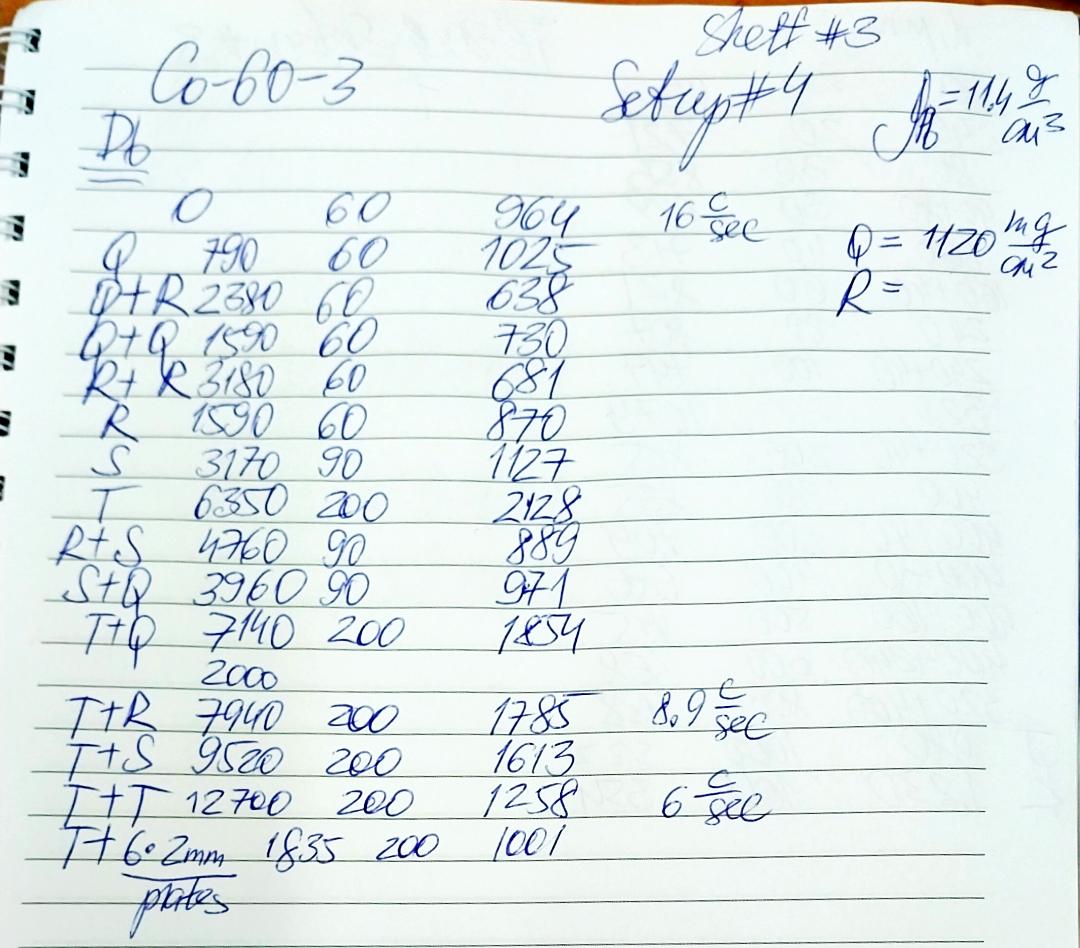 Shelf #3
Co-60-3 Setup #4 ρ = 11.4 g/cm³
Pb
0 60 964 16 c/sec
Q 790 60 1025 Q = 1120 mg/cm²
Q+R 2380 60 638 R =
Q+Q 1590 60 730
R+R 3180 60 681
R 1590 60 870
S 3170 90 1127
T 6350 200 2128
R+S 4760 90 889
S+Q 3960 90 971
T+Q 7140 200 1854
2000
T+R 7940 200 1785 8.9 c/sec
T+S 9520 200 1613
T+T 12700 200 1258 6 c/sec
T+6·2mm 1835 200 1001
plates